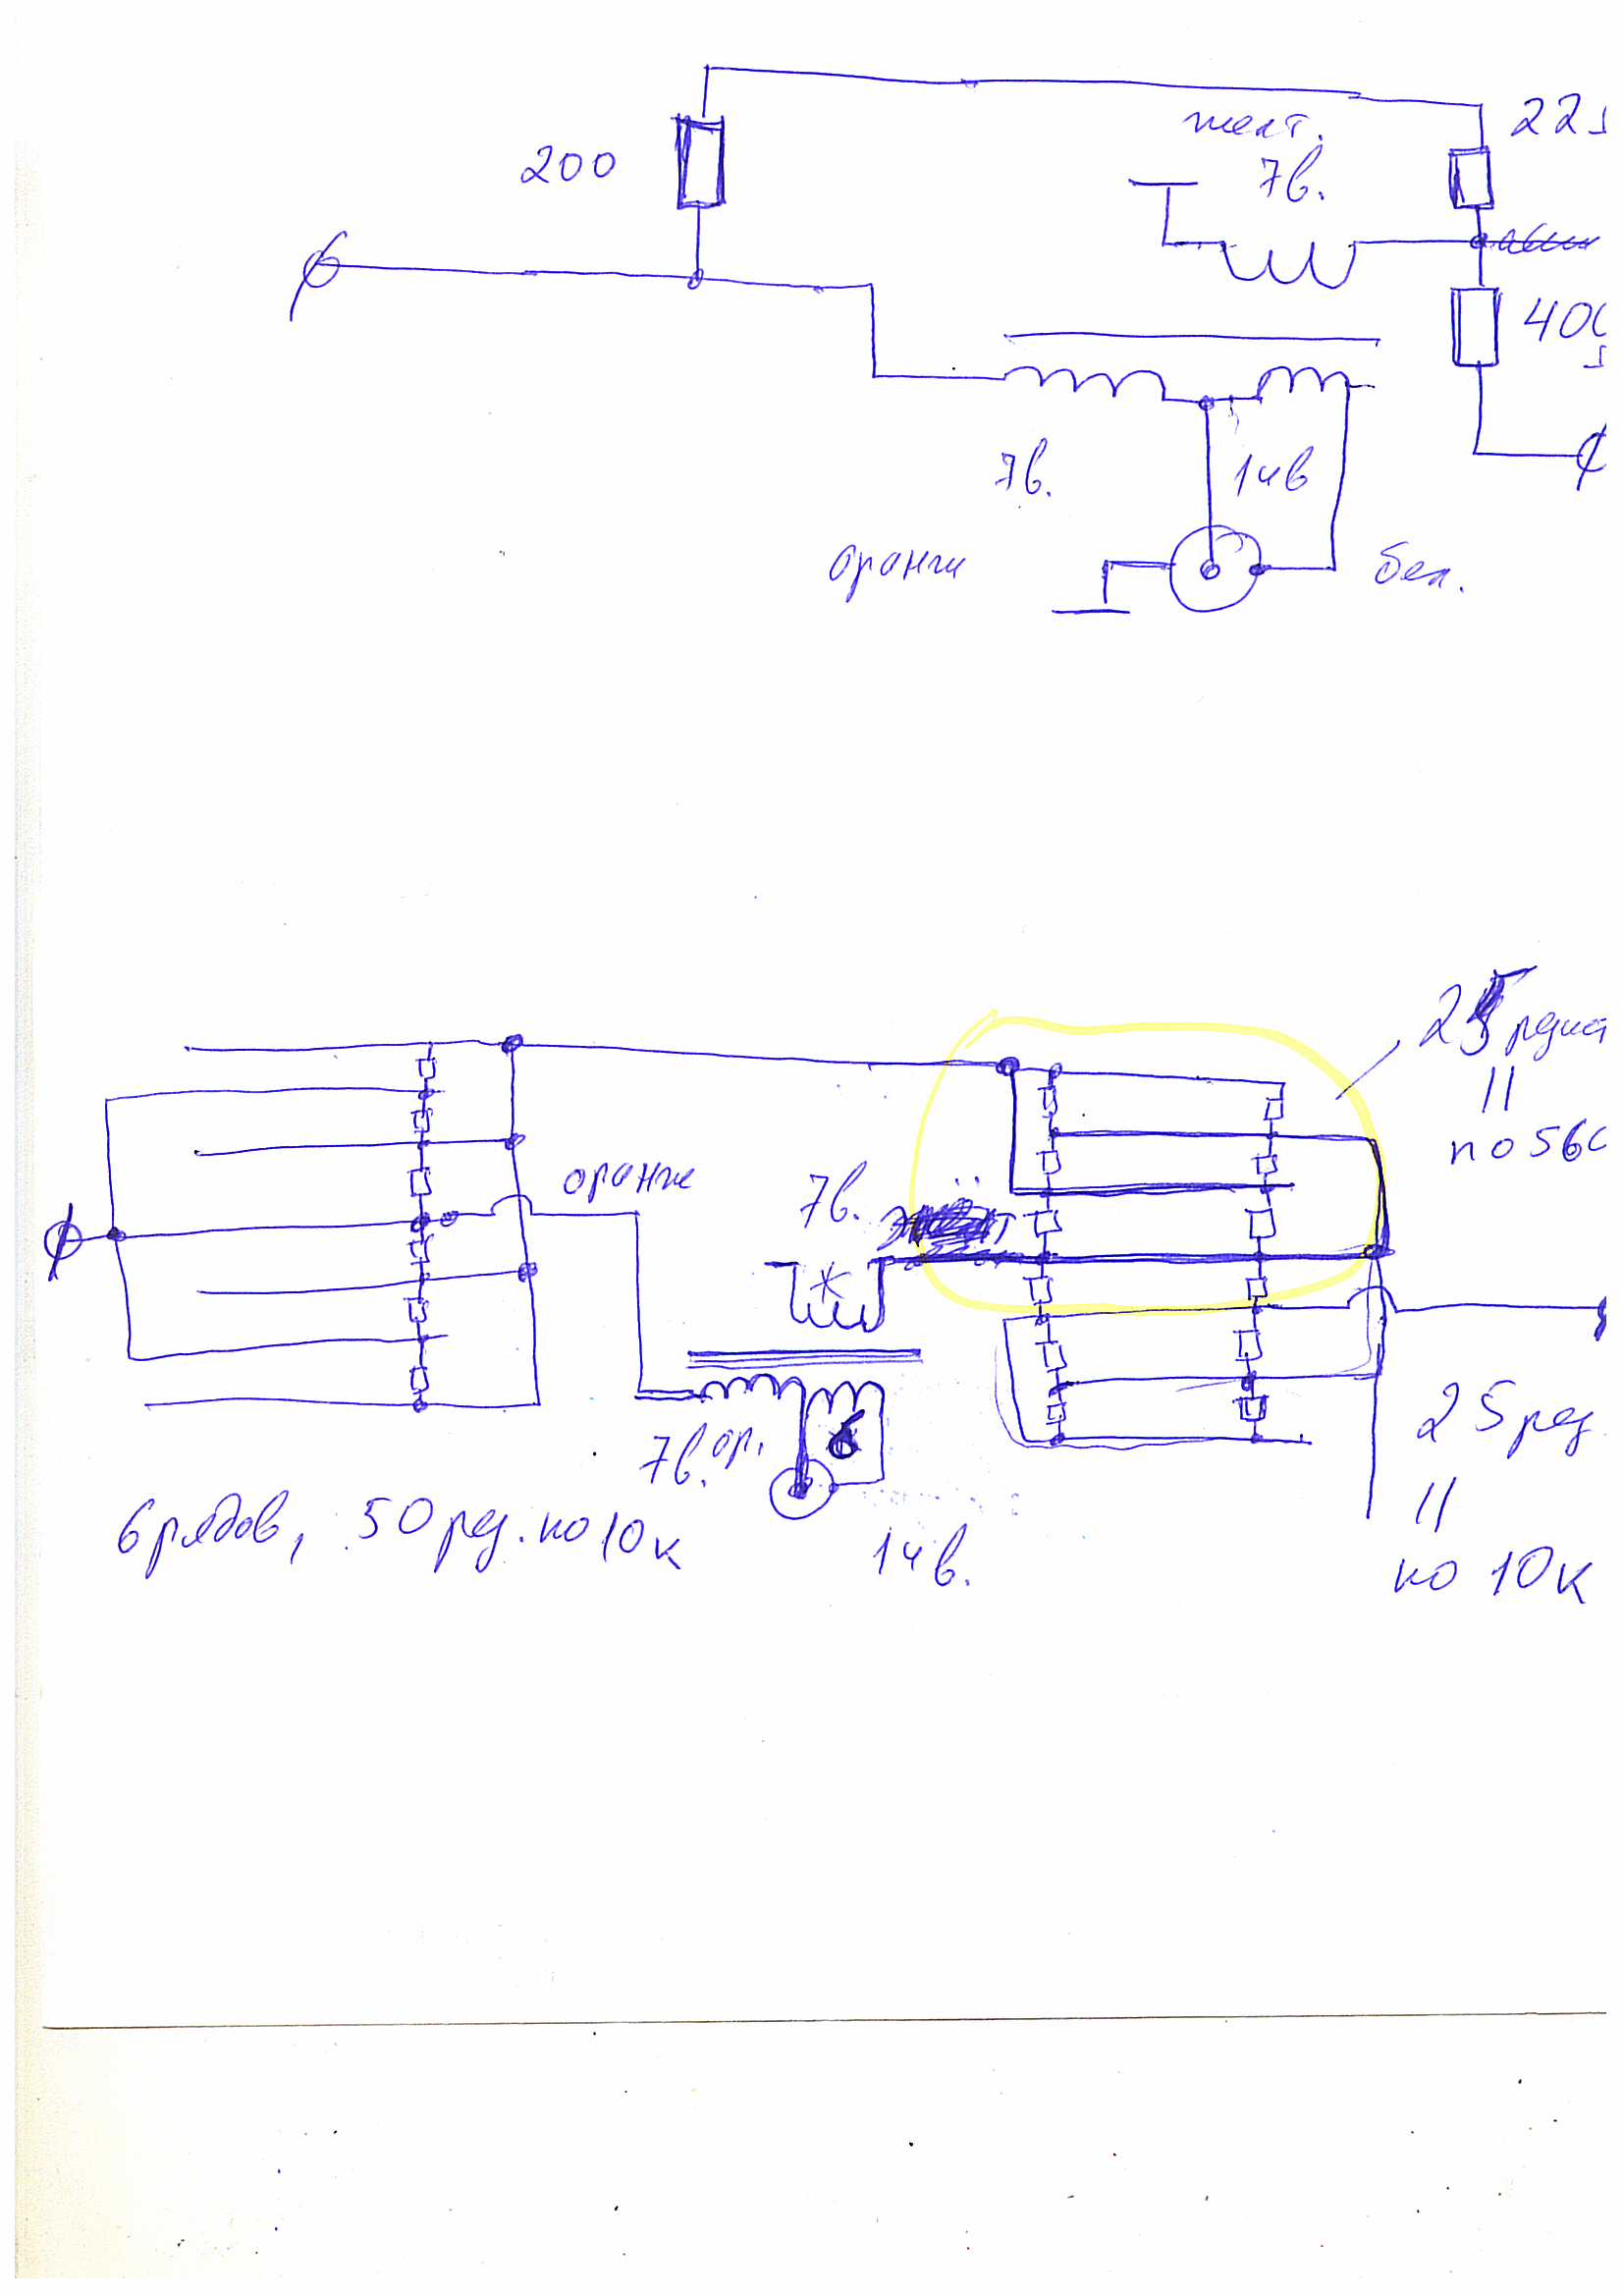 200
желт.
7в.
22
400
7в.
14в
оранж
бел.
25
//
по 560
оранж
7в.
7в. ор.
б
6 рядов, 50 рез. по 10к
14в.
25 рез.
//
по 10к